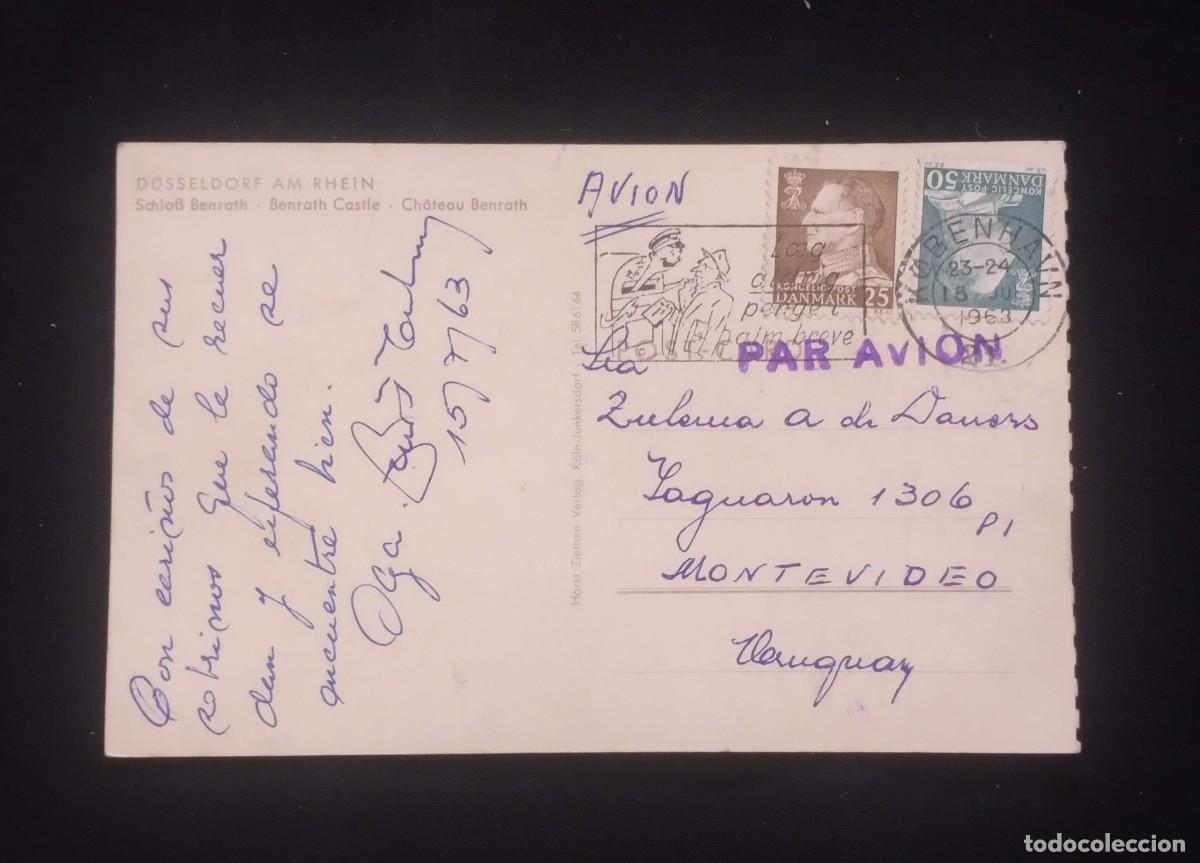 DÜSSELDORF AM RHEIN
Schloß Benrath · Benrath Castle · Château Benrath
Con cariños de sus
sobrinos que le recuer
dan y esperando se
encuentre bien.
Olga
15/7/63
Horst Ziethen Verlag, Köln-Junkersdorf Tel. 58 61 64
AVION
Læg
aldrig
penge i
alm. breve
KONGELIG POST
DANMARK 25
KONGELIG POST
DANMARK 50
KØBENHAVN
23-24
15 JUL
1963
PAR AVION
Zulema A de
Yaguaron 1306 P1
MONTEVIDEO
Uruguay
todocoleccion